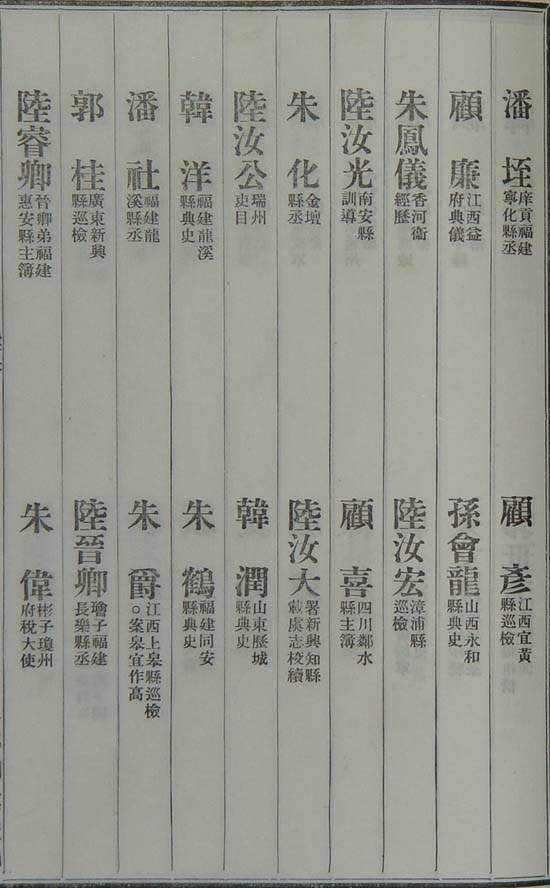 潘垤 庠貢福建寧化縣丞 顧彥 江西宜黃縣巡檢
顧廉 江西益府典儀 孫會龍 山西永和縣典史
朱鳳儀 香河衞經歷 陸汝宏 漳浦縣巡檢
陸汝光 南安縣訓導 顧喜 四川鄰水縣主簿
朱化 金壇縣丞 陸汝大 署新興知縣載虞志校續
陸汝公 瑞州吏目 韓潤 山東歷城縣典史
韓洋 福建龍溪縣典史 朱鶴 福建同安縣典史
潘社 福建龍溪縣丞 朱爵 江西上皋縣巡檢○案皋宜作高
郭桂 廣東新興縣巡檢 陸晉卿 子福建長樂縣丞
陸睿卿 晉卿弟福建惠安縣主簿 朱偉 彬子瓊州府稅大使